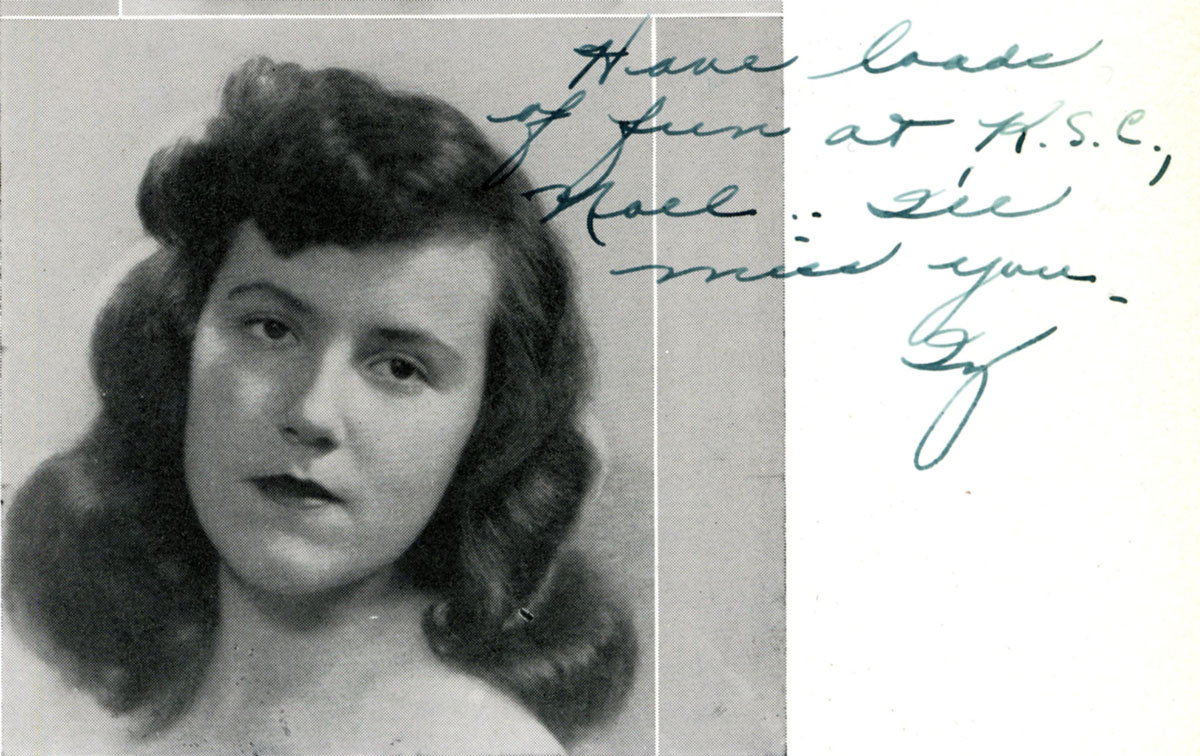 Have loads
of fun at K.S.C.,
Noel .. I'll
miss you.